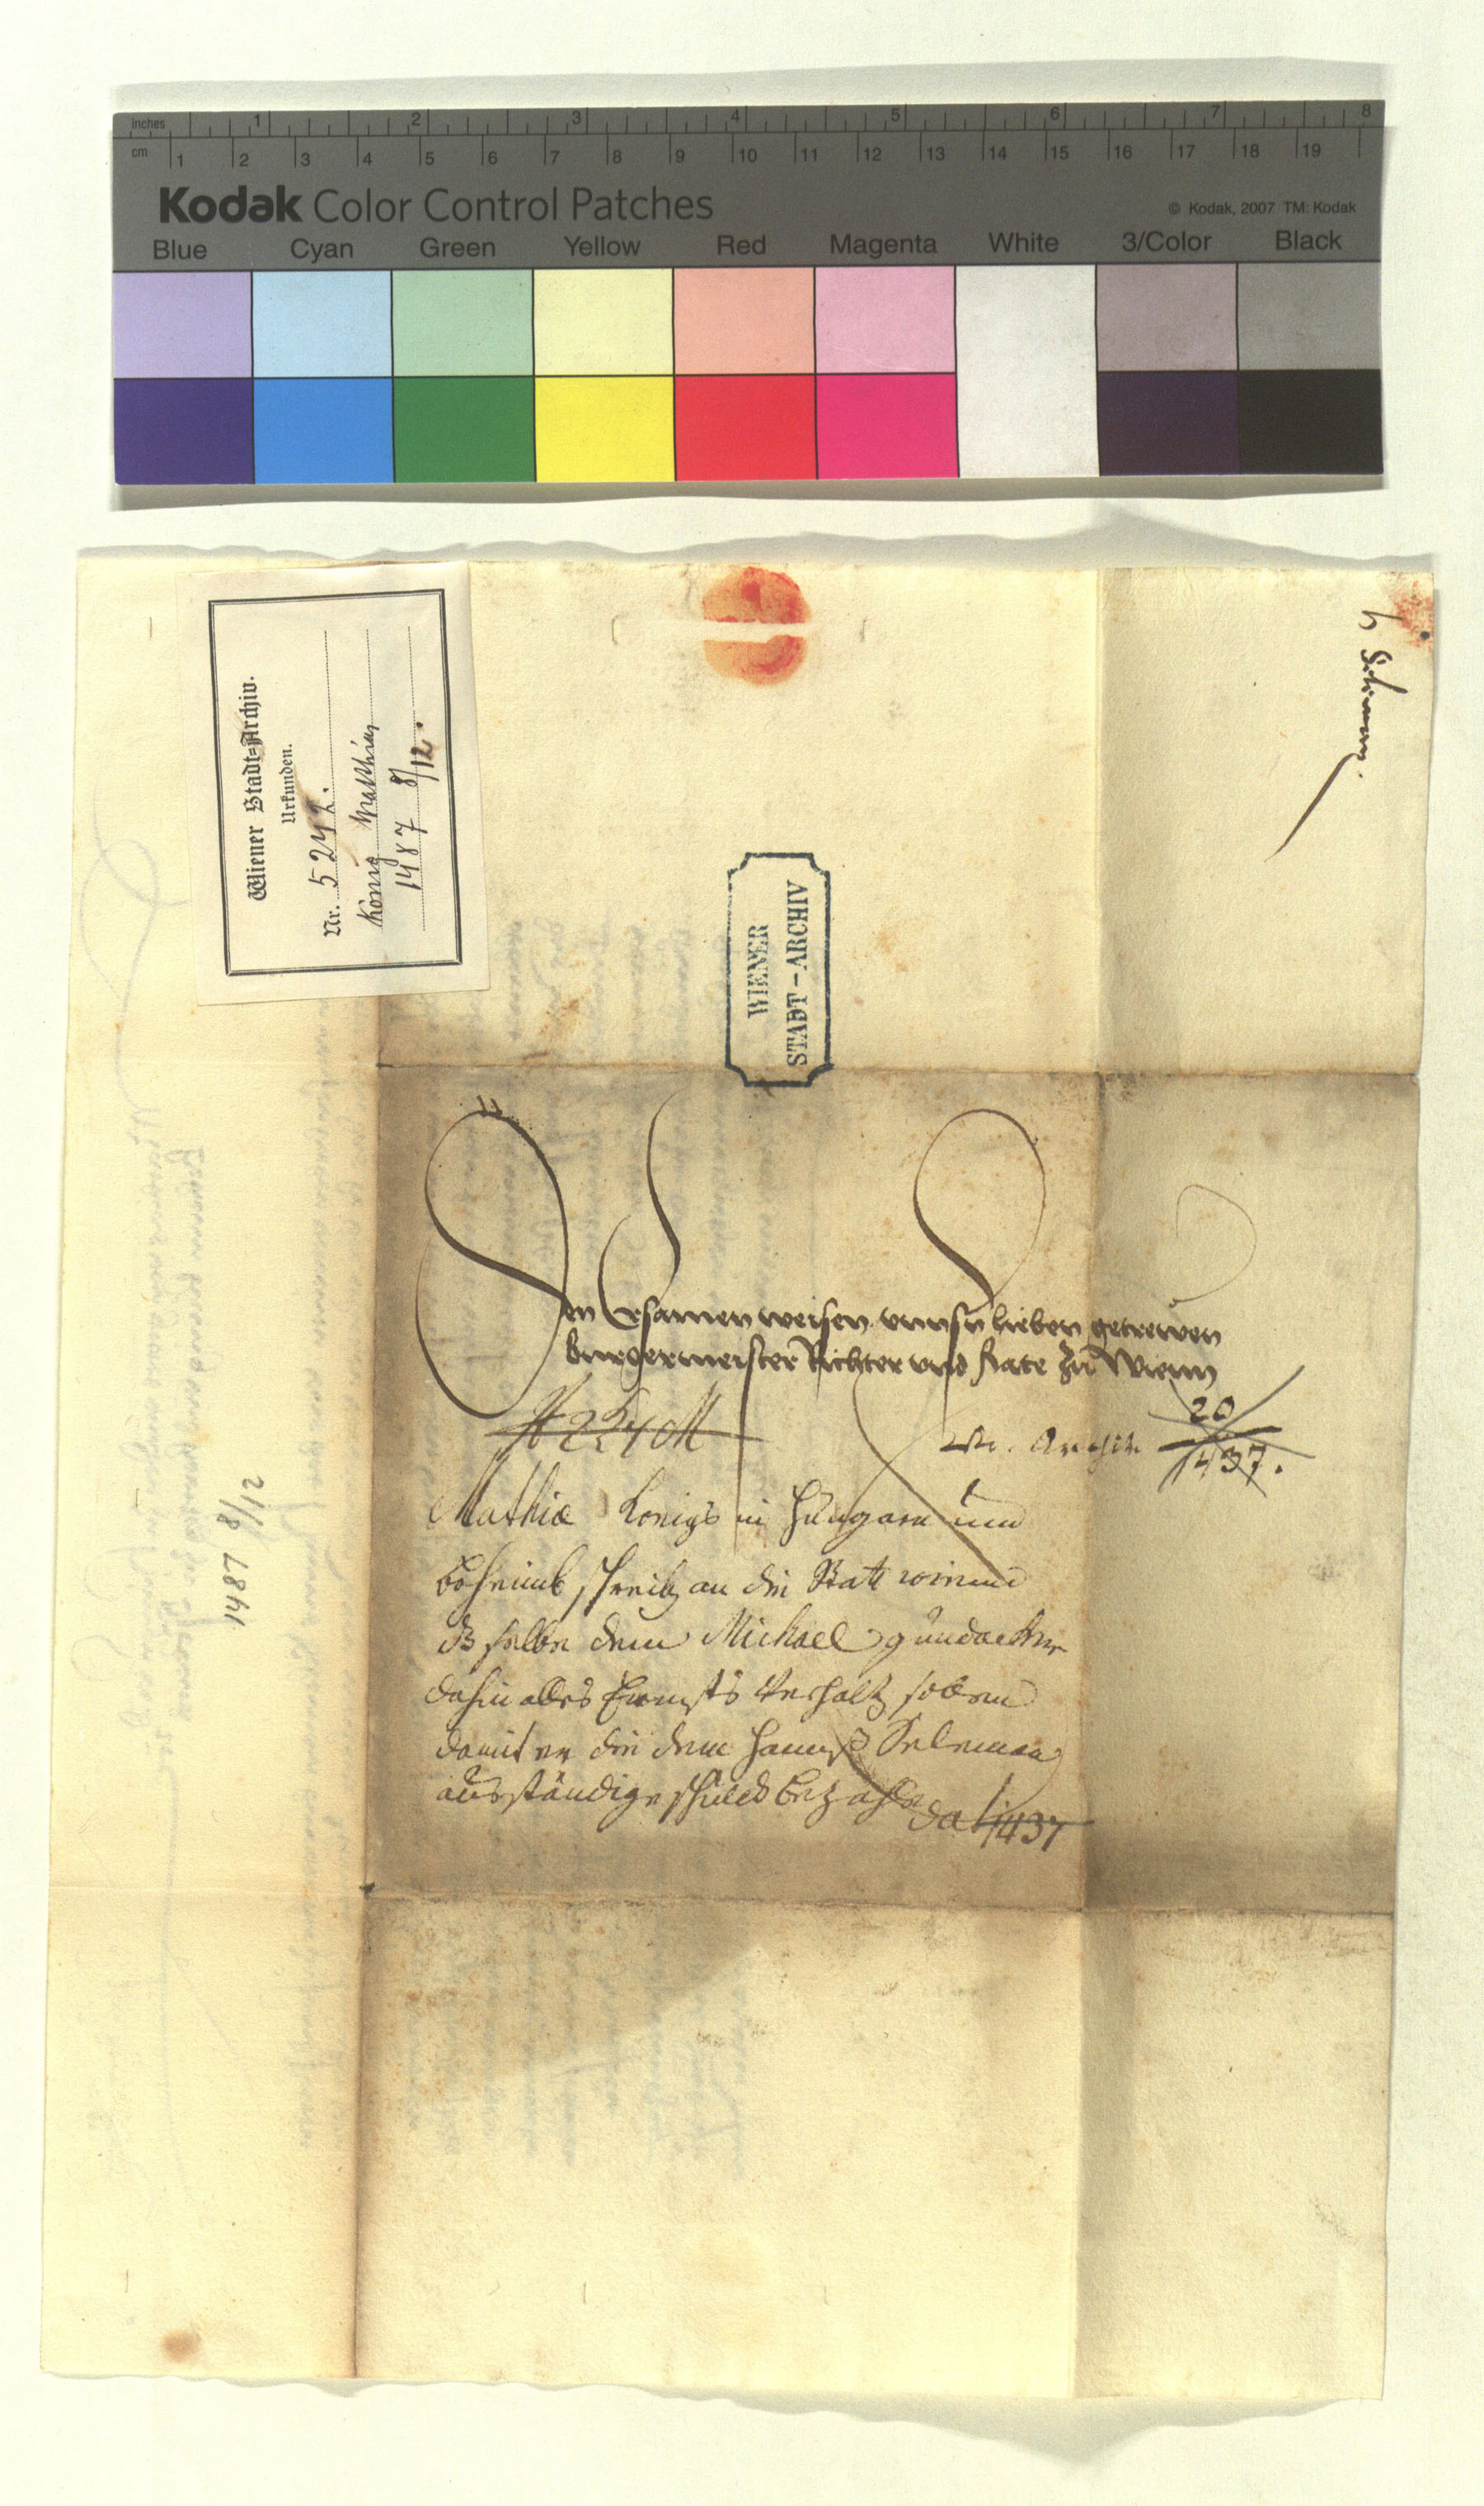 inches 1 2 3 4 5 6 7 8
cm 1 2 3 4 5 6 7 8 9 10 11 12 13 14 15 16 17 18 19
Kodak Color Control Patches
© Kodak, 2007 TM: Kodak
Blue Cyan Green Yellow Red Magenta White 3/Color Black
Wiener Stadt-Archiv.
Urkunden.
Nr. 5242.
König Mathias
1487 8/12.
WIENER
STADT-ARCHIV
Den Ersamen weisen unnsn lieben getrewen
Burgermeister Richter und Rate zu Wienn
20
1437.
Mathiæ Königs in Hungarn und
Böheimb schreib an die Statt wienn
dem Michael
damit er die dem Hannß
ausständige schuld bezahle
dat 1437
1487 8/12